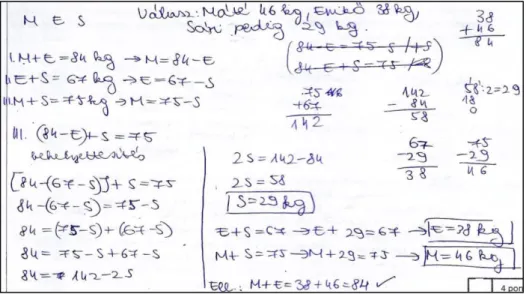 M E S
Válasz: Máté 46 kg, Enikő 38 kg,
Sári pedig 29 kg.
I. M+E=84 kg → M=84-E
II. E+S=67 kg → E=67-S
III. M+S=75 kg → M=75-S
III. (84-E)+S=75
behelyettesítés
[84-(67-S)]+S=75
84-(67-S)=75-S
84=(75-S)+(67-S)
84=75-S+67-S
84=142-2S
(84-E=75-S /+S
(84-E+S=75
38
+46
84
75
+67
142
142
-84
58
58:2=29
18
0
67
-29
38
75
-29
46
2S=142-84
2S=58
S=29 kg
E+S=67 → E+29=67 → E=38 kg
M+S=75 → M+29=75 → M=46 kg
Ell.: M+E=38+46=84 ✓
4 pon